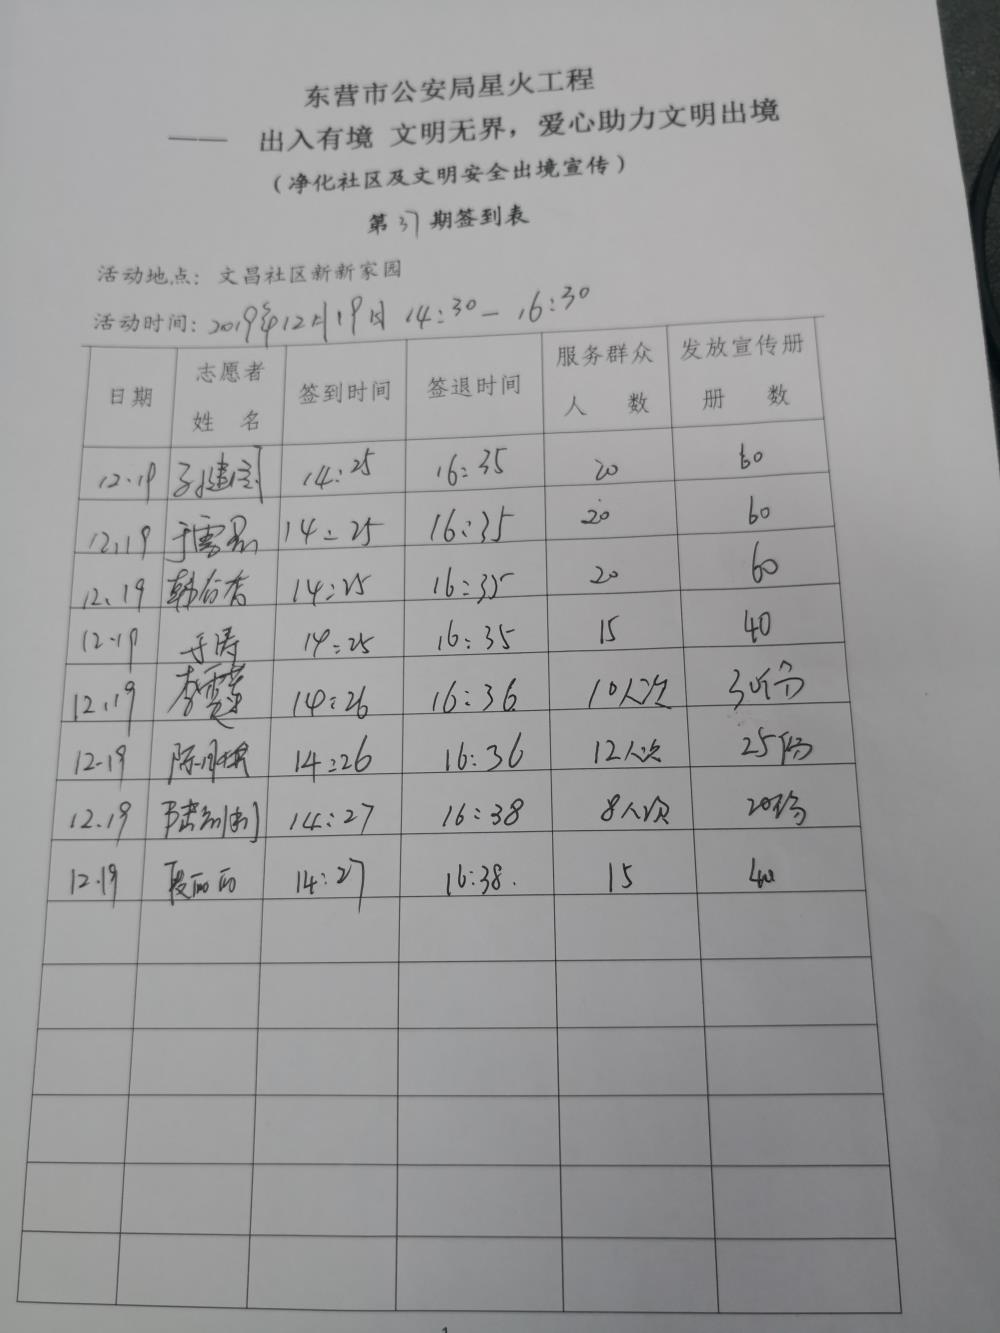 东营市公安局星火工程
—— 出入有境 文明无界，爱心助力文明出境
（净化社区及文明安全出境宣传）
第37期签到表
活动地点：文昌社区新新家园
活动时间：2019年12月19日 14:30—16:30
日期 志愿者姓名 签到时间 签退时间 服务群众人数 发放宣传册册数
12.19 14:25 16:35 20 60
12.19 14:25 16:35 20 60
12.19 14:25 16:35 20 60
12.19 于涛 14:25 16:35 15 40
12.19 李雪莲 14:26 16:36 10人次 30份
12.19 14:26 16:36 12人次 25份
12.19 14:27 16:38 8人次 20份
12.19 段丽丽 14:27 16:38. 15 40
1